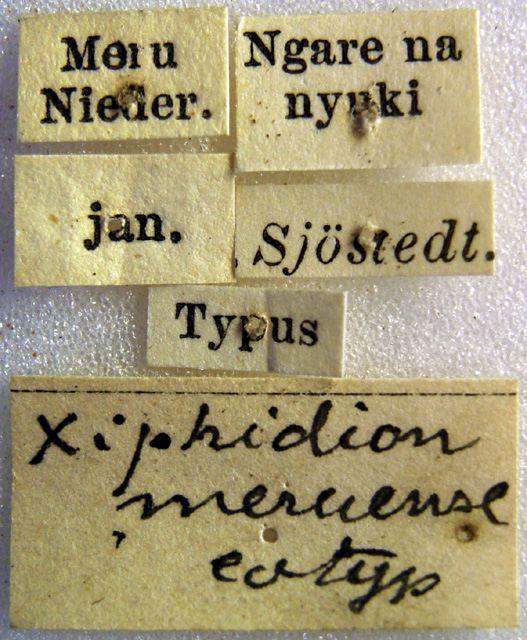 Meru
Nieder.
Ngare na
nyuki
jan.
Sjöstedt.
Typus
Xiphidion
meruense
cotyp